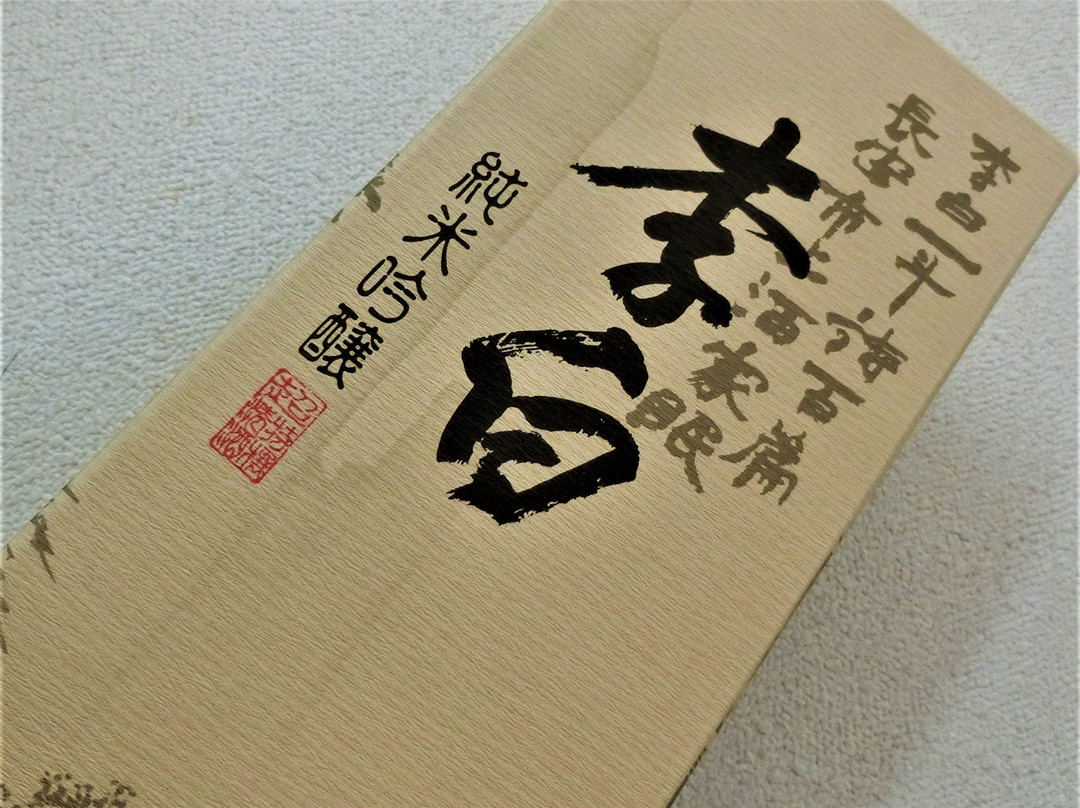 李白一斗詩百篇
長安市上酒家眠
李白
純米吟醸